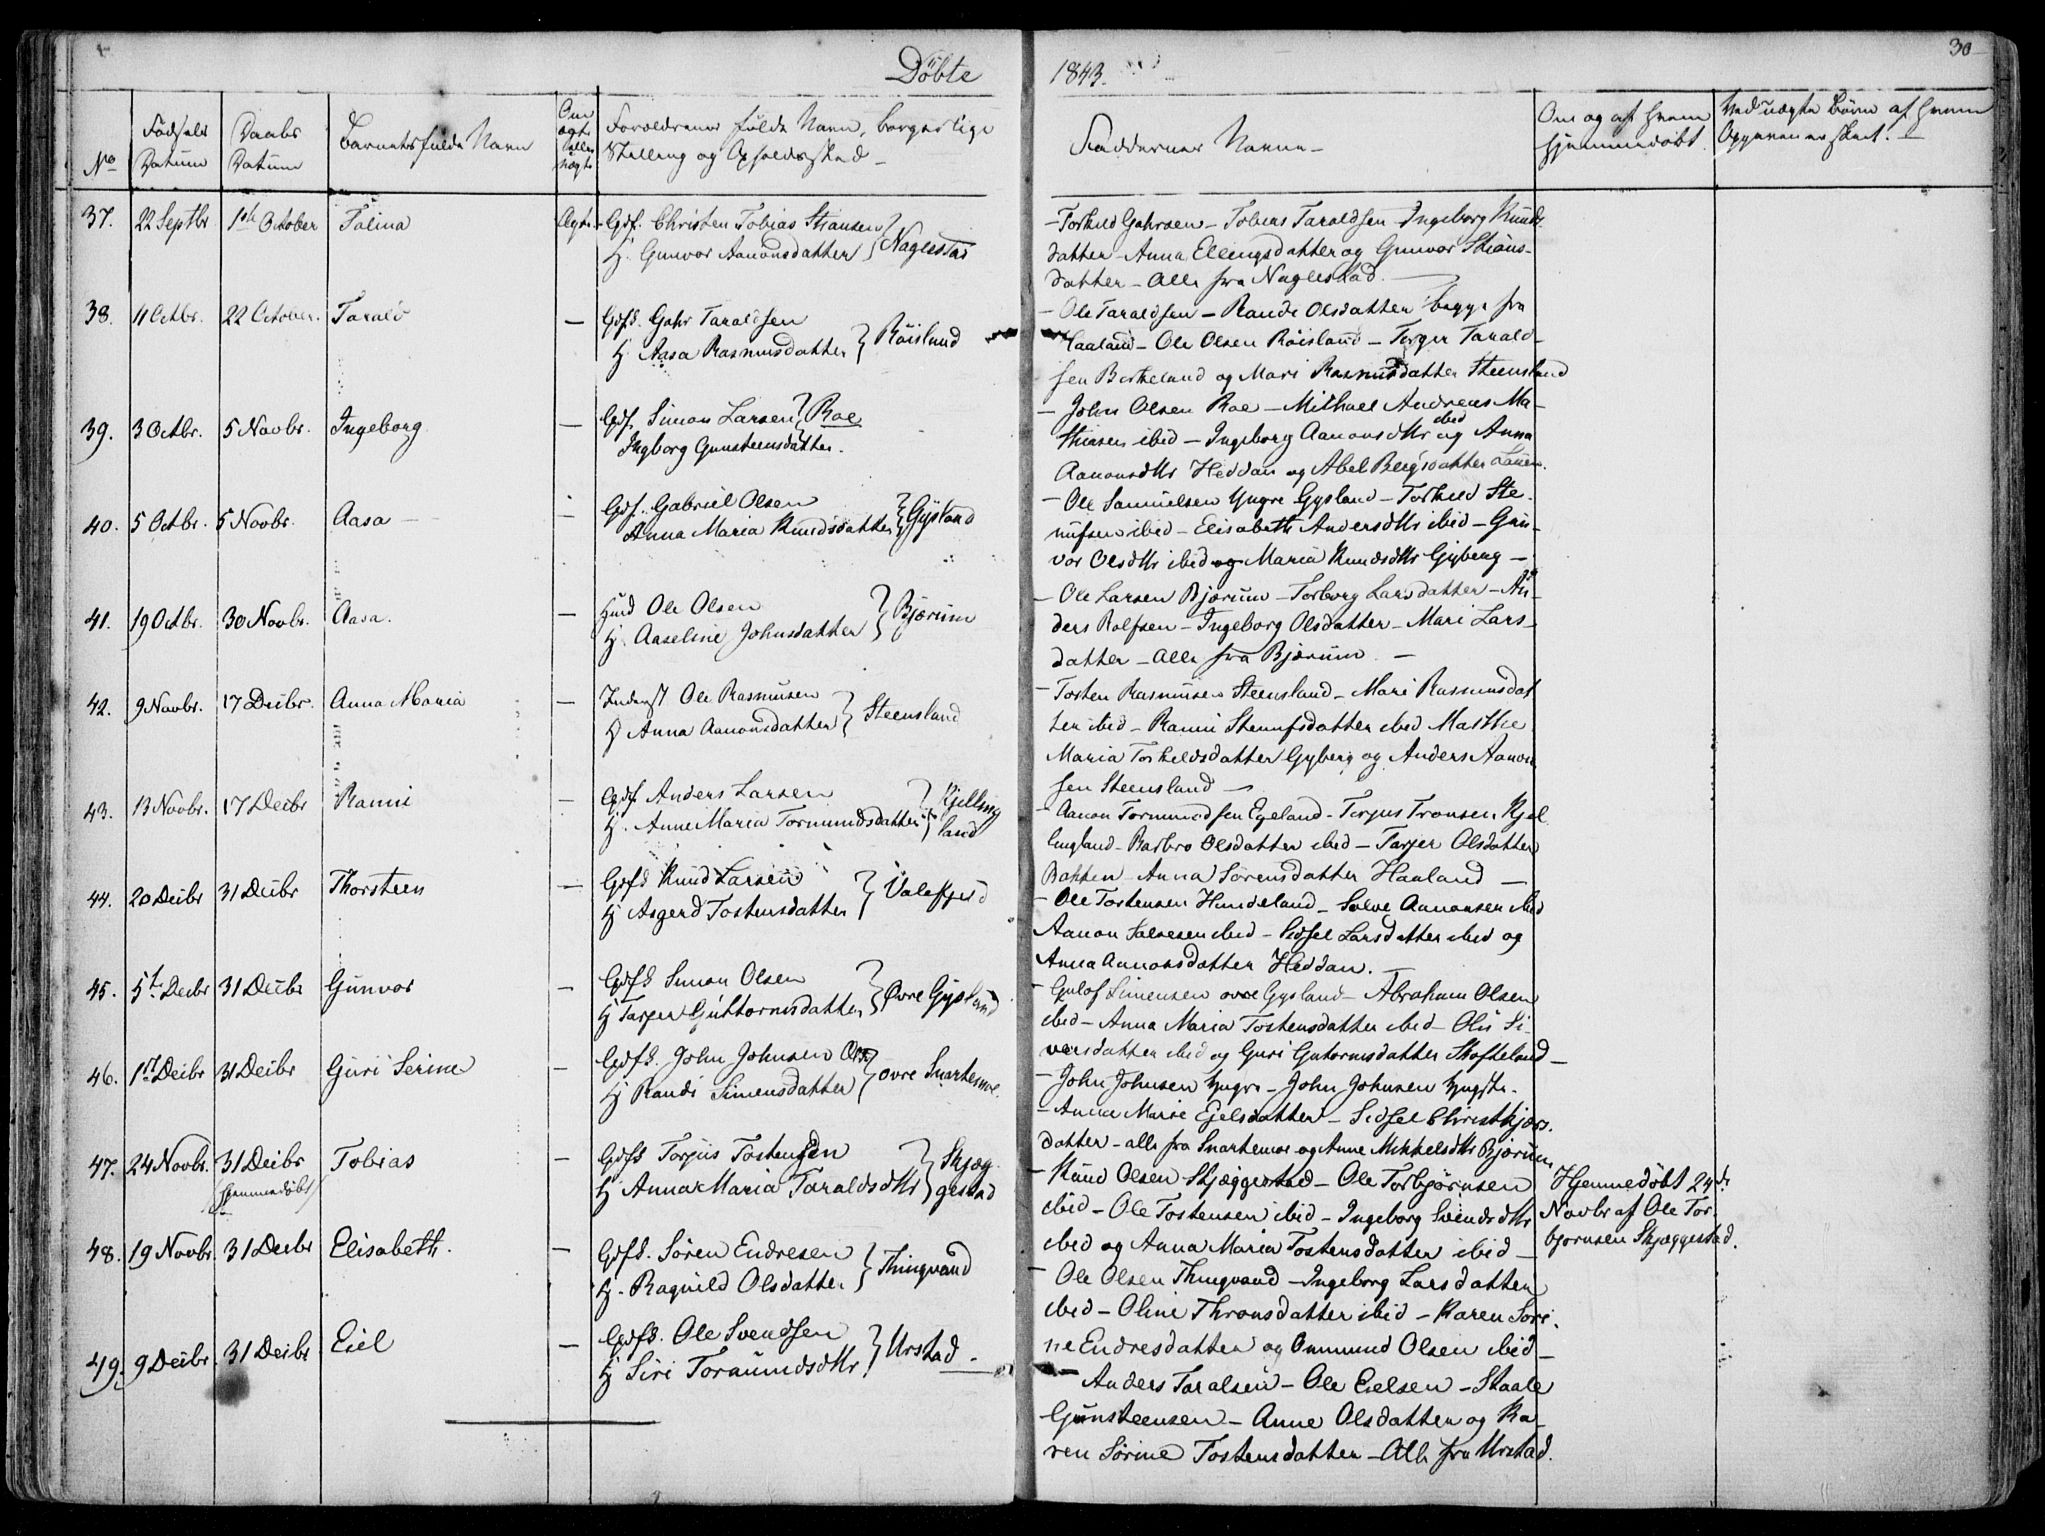 Döbte 1843.
30
No
Födsels Datum
Daabs Datum
Barnets fulde Navn
Om ægte eller uægte
Forældrenes fulde Navn, borgerlige Stilling og Opholdssted
Faddernes Navne
Om og af hvem hjemmedøbt
Ved uægte Børn af hvem Opgaven er skeet.
37. 22 Septbr 1ste October Talina Ægte Gdf. Christen Tobias Stiansen
H. Gunvor Aanonsdatter } Naglestad
- Torkild Gahrsen - Tobias Taraldsen Ingeborg Knuds-
datter - Anna Ellingsdatter og Gunvor Stians-
datter - Alle fra Naglestad.
38. 11 Octbr. 22 October. Tarald - Gdfd. Gahr Taraldsen
H. Aasa Rasmusdatter } Röisland
- Ole Taraldsen - Rande Olsdatter begge fra
Haaland - Ole Olsen Röisland - Torger Tarald-
sen Birkeland og Mari Rasmusdatter Steensland
39. 3 Octbr. 5 Novbr. Ingeborg - Gdf. Simon Larsen } Roe
Ingborg Gunsteensdatter.
- John Olsen Roe - Mithael Andreas Ma-
thiasen ibid - Ingeborg Aanonsdttr ibid og Anna
Aanonsdttr Heddan og Abel Bergsdatter Lauen.
40. 5 Octbr. 5 Novbr. Aasa - - Gdf. Gabriel Olsen
Anna Maria Knudsdatter } Gysland
- Ole Samuelsen Yngre Gysland - Torkild Ste-
nufsen ibid - Elisabeth Andersdttr ibid - Gun-
vor Olsdttr ibid og Maria Knudsdttr Gyberg -
41. 19 Octbr. 30 Novbr. Aasa. - Huusmd Ole Olsen
H. Aaseline Johnsdatter } Bjærum
- Ole Larsen Bjærum - Torborg Larsdatter - An-
ders Rolfsen - Ingeborg Olsdatter - Mari Lars-
datter - Alle fra Bjærum. -
42. 9 Novbr. 17 Decbr. Anna Maria - Inderst Ole Rasmusen
H Anna Aanonsdatter } Steensland
- Tosten Rasmusen Steensland - Mari Rasmusdat
ter ibid - Ranni Stenufsdatter ibid Marthe
Maria Torkildsdatter Gyberg og Anders Aanon
sen Steensland -
43. 13 Novbr. 17 Decbr Ranni - Gdf Anders Larsen
H. Anne Maria Tormundsdatter } Kjelling
land
- Aanon Tormundsen Egeland - Torjus Tronsen Kjel
lingland - Barbro Olsdatter ibid - Tarjer Olsdatter
Bakken - Anna Sørensdatter Haaland -
44. 20 Decbr 31 Decbr Thorsteen - Gdfd Knud Larsen
H Asgerd Tostensdatter } Valefjeld
- Ole Tostensen Hundeland - Solve Aanonsen ibid
Aanon Salvesen ibid - Sidsel Larsdatter ibid og
Anna Aanonsdatter Heddan. -
45. 5te Decbr 31 Decbr Gunvor - Gdfd Simon Olsen
H Tarjer Guttormsdatter } Øvre Gysland
- Gulof Simensen ovre Gysland - Abraham Olsen
ibid - Anna Maria Tostensdatter ibid - Oli Si-
versdatter ibid og Guri Gutormsdatter Skofteland
46. 1ste Decbr 31 Decbr Guri Serine - Gdfd. John Johnsen
H Randi Simensdatter } øvre Snartemoe.
- John Johnsen Yngre - John Johnsen Yngste.
- Anna Marie Ejelsdatter - Sidsel Christkjærs.
datter - alle fra Snartemoe og Anne Mikkelsdttr Bjorum
47. 24 Novbr. 31 Decbr Tobias - Gdfd Torjus Tostensen
(Hjemmedøbt) H Anna Maria Taraldsdttr } Skjæg
gestad
- Knud Olsen Skjæggestad - Ole Torbjørnsen
ibid - Ole Tostensen ibid - Ingeborg Svendsdttr
ibid og Anna Maria Tostensdatter ibid -
Hjemmedöbt 24de
Novbr af Ole Tor-
bjornsen Skjæggestad.
48. 19 Novbr. 31 Decbr Elisabeth. - Gdfd. Søren Endresen
H. Ragnild Olsdatter } Thingvand
- Ole Olsen Thingvand - Ingeborg Larsdatter
ibid - Oline Thronsdatter ibid - Karen Sori-
ne Endresdatter og Ommund Olsen ibid -
49. 9 Decbr. 31 Decbr Eiel - Gdfd. Ole Svendsen
H Siri Tormundsdttr. } Urstad -
- Anders Taralsen - Ole Eielsen - Staale
Gunsteensen - Anne Olsdatter og Ka-
ren Sörine Tostensdatter - Alle fra Urstad.